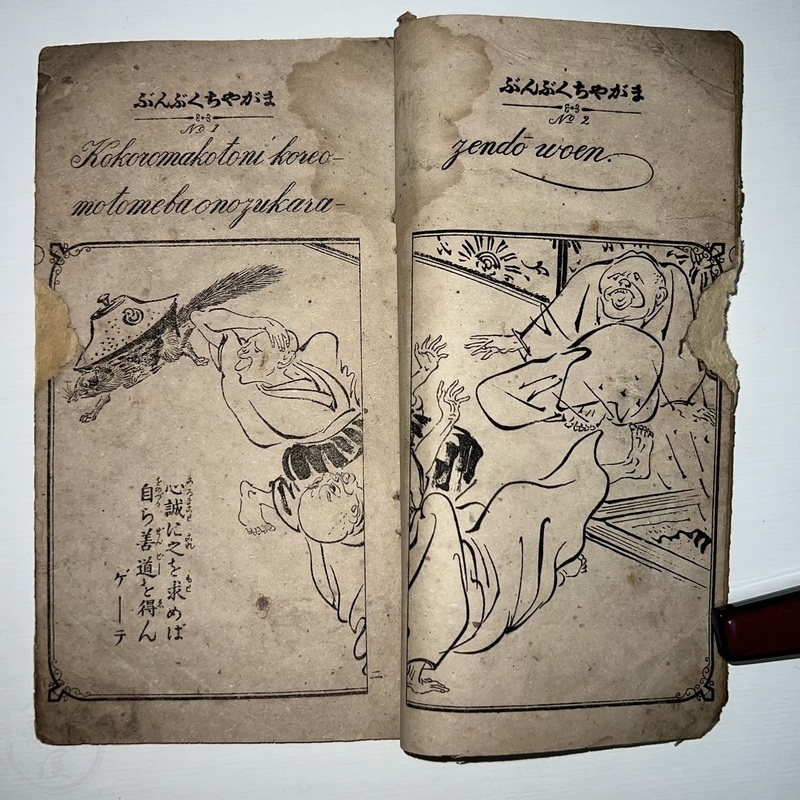 ぶんぶくちやがま
№ 1
Kokoromakotoni koreo-
motomeba onozukara-
心誠に之を求めば
自ら善道を得ん
ゲーテ
二
ぶんぶくちやがま
№ 2
zendō woen.